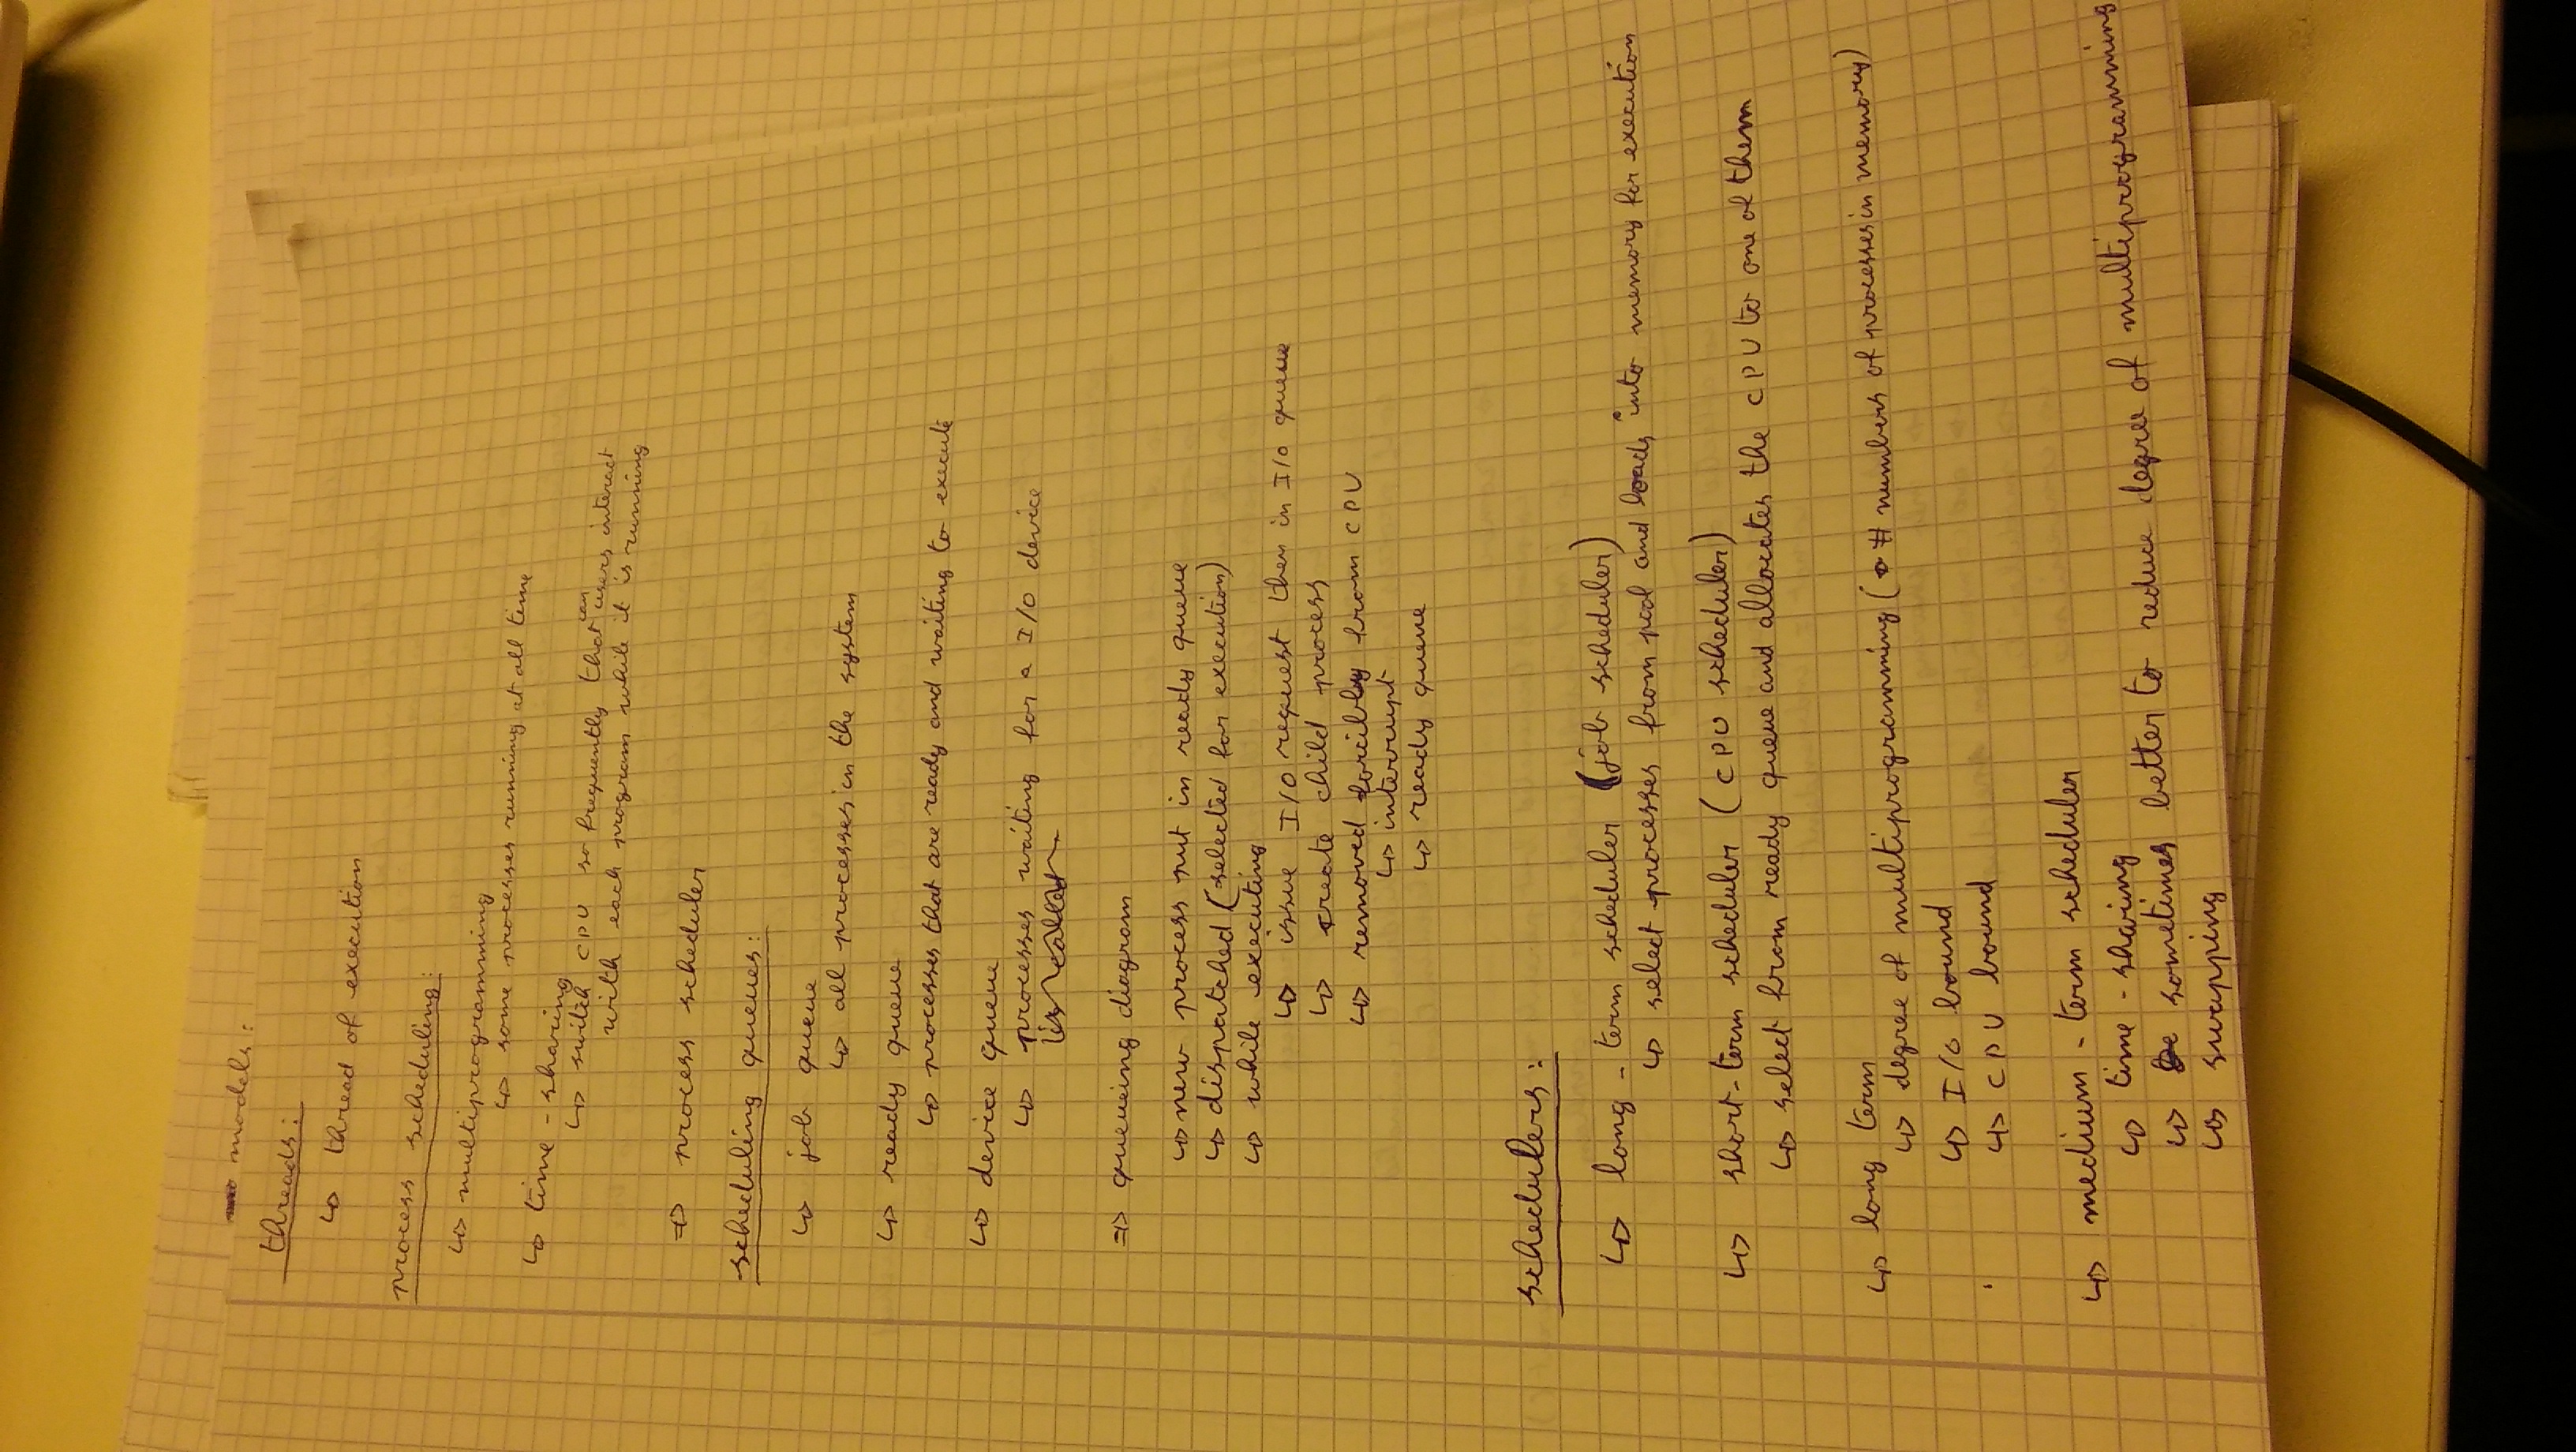 models:
threads:
↳ thread of execution
process scheduling:
↳ multiprogramming
↳ some processes running at all time
↳ time-sharing
↳ switch CPU so frequently that can users interact
with each program while it is running
⇒ process scheduler
scheduling queues:
↳ job queue
↳ all processes in the system
↳ ready queue
↳ processes that are ready and waiting to execute
↳ device queue
↳ processes waiting for a I/O device
is called
⇒ queueing diagram
↳ new process put in ready queue
↳ dispatched (selected for execution)
↳ while executing
↳ issue I/O request then in I/O queue
↳ create child process
↳ removed forcibly from CPU
↳ interrupt
↳ ready queue
schedulers:
↳ long-term scheduler (job scheduler)
↳ select processes from pool and loads into memory for execution
↳ short-term scheduler (CPU scheduler)
↳ select from ready queue and allocates the CPU to one of them
↳ long term
↳ degree of multiprogramming (# numbers of processes in memory)
↳ I/O bound
↳ CPU bound
↳ medium-term scheduler
↳ time-sharing
↳ sometimes better to reduce degree of multiprogramming
↳ swapping